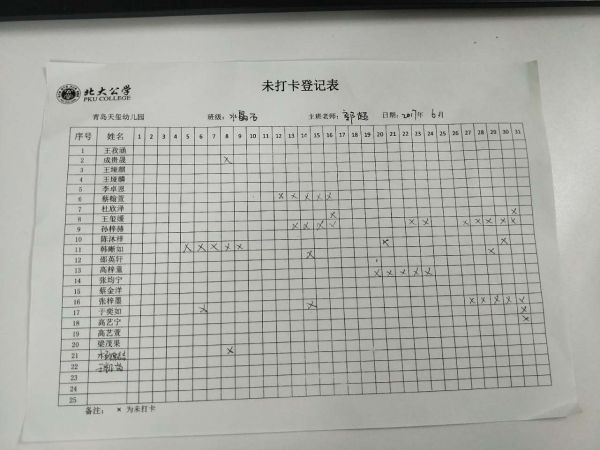 北大公学
PKU COLLEGE
未打卡登记表
青岛天玺幼儿园 班级: 主班老师: 日期: 2017年 6月
序号 姓名 1 2 3 4 5 6 7 8 9 10 11 12 13 14 15 16 17 18 19 20 21 22 23 24 25 26 27 28 29 30 31
1
2 成贵晟 ×
3
4
5 李卓恩
6 蔡翰萱 × × × × ×
7 杜欣泽 ×
8 王玺媛 × × × × × × × ×
9 孙梓赫 × × × ×
10 陈沐祥 × ×
11 韩晰如 × × × × × × ×
12 邵英轩
13 高梓童 × × × × ×
14 张均宁
15 蔡金洋
16 张梓墨 × × × × ×
17 于奕如 × × ×
18 高艺宁 ×
19 高艺萱
20 梁茂果
21 ×
22
23
24
25
备注: × 为未打卡